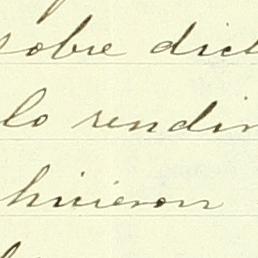 sobre dict
lo rendir
hicieron